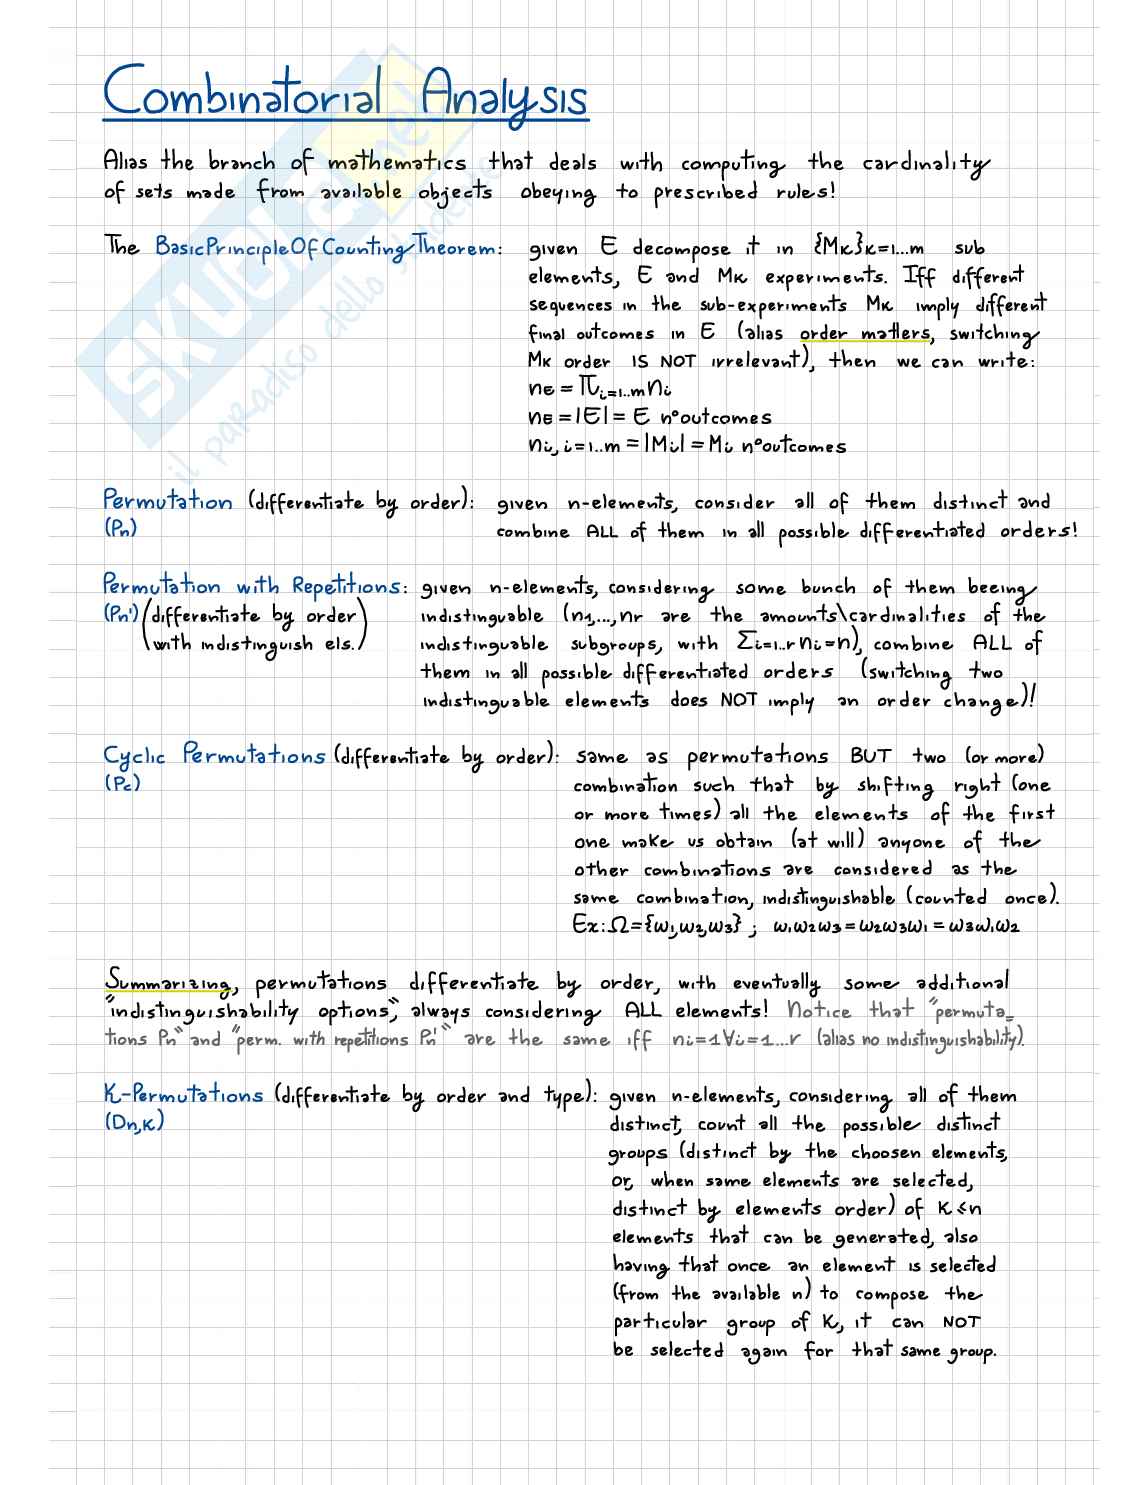 Combinatorial Analysis
Alias the branch of mathematics that deals with computing the cardinality
of sets made from available objects obeying to prescribed rules!
The BasicPrincipleOfCountingTheorem: given E decompose it in {Mk}k=1...m sub
elements, E and Mk experiments. Iff different
sequences in the sub-experiments Mk imply different
final outcomes in E (alias order matters, switching
Mk order IS NOT irrelevant), then we can write:
nE = πi=1..m ni
nE = |E| = E n°outcomes
ni, i=1..m = |Mi| = Mi n°outcomes
Permutation (differentiate by order): given n-elements, consider all of them distinct and
(Pn) combine ALL of them in all possible differentiated orders!
Permutation with Repetitions: given n-elements, considering some bunch of them beeing
(Pn') (differentiate by order indistinguable (n1,...,nr are the amounts\cardinalities of the
with indistinguish els.) indistinguable subgroups, with Σi=1..r ni=n), combine ALL of
them in all possible differentiated orders (switching two
indistinguable elements does NOT imply an order change)!
Cyclic Permutations (differentiate by order): same as permutations BUT two (or more)
(Pc) combination such that by shifting right (one
or more times) all the elements of the first
one make us obtain (at will) anyone of the
other combinations are considered as the
same combination, indistinguishable (counted once).
Ex: Ω={ω1,ω2,ω3} ; ω1ω2ω3=ω2ω3ω1=ω3ω1ω2
Summarizing, permutations differentiate by order, with eventually some additional
"indistinguishability options", always considering ALL elements! Notice that "permuta=
tions Pn" and "perm. with repetitions Pn'" are the same iff ni=1∀i=1...r (alias no indistinguishability).
K-Permutations (differentiate by order and type): given n-elements, considering all of them
(Dn,k) distinct, count all the possible distinct
groups (distinct by the choosen elements,
or, when same elements are selected,
distinct by elements order) of K≤n
elements that can be generated, also
having that once an element is selected
(from the available n) to compose the
particular group of K, it can NOT
be selected again for that same group.
SKUOLA.net
il paradiso dello studente